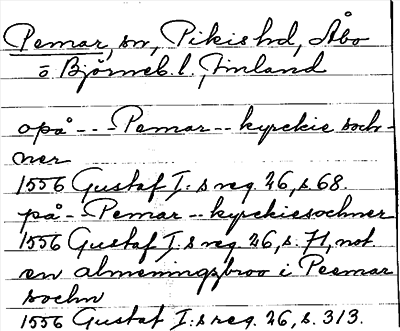 Pemar, sn, Pikis hd, Åbo
o Björneb. l. Finland
opå - - - Pemar - - kyrckie soch-
ner
1556 Gustaf I:s reg. 26, s. 68.
på - - Pemar - - kyrckiesochner
1556 Gustaf I:s reg. 26, s. 71, not
en almeningzbroo i Peemar
sochn
1556 Gustaf I:s reg. 26, s. 313.